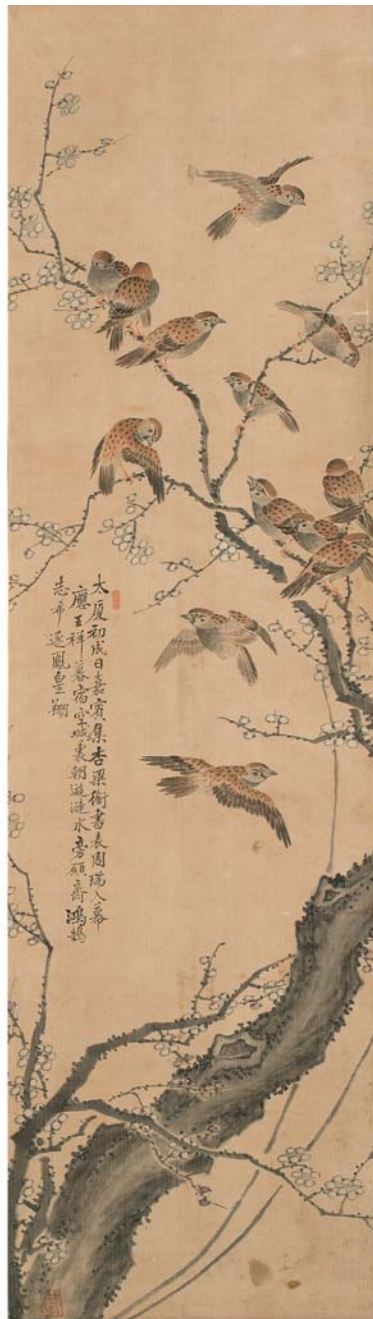 大厦初成日嘉賓集杏梁銜書表周瑞入幕
應王祥暮宿空城裏朝遊漣水旁願齊鴻鵠
志希逐鳳皇翔